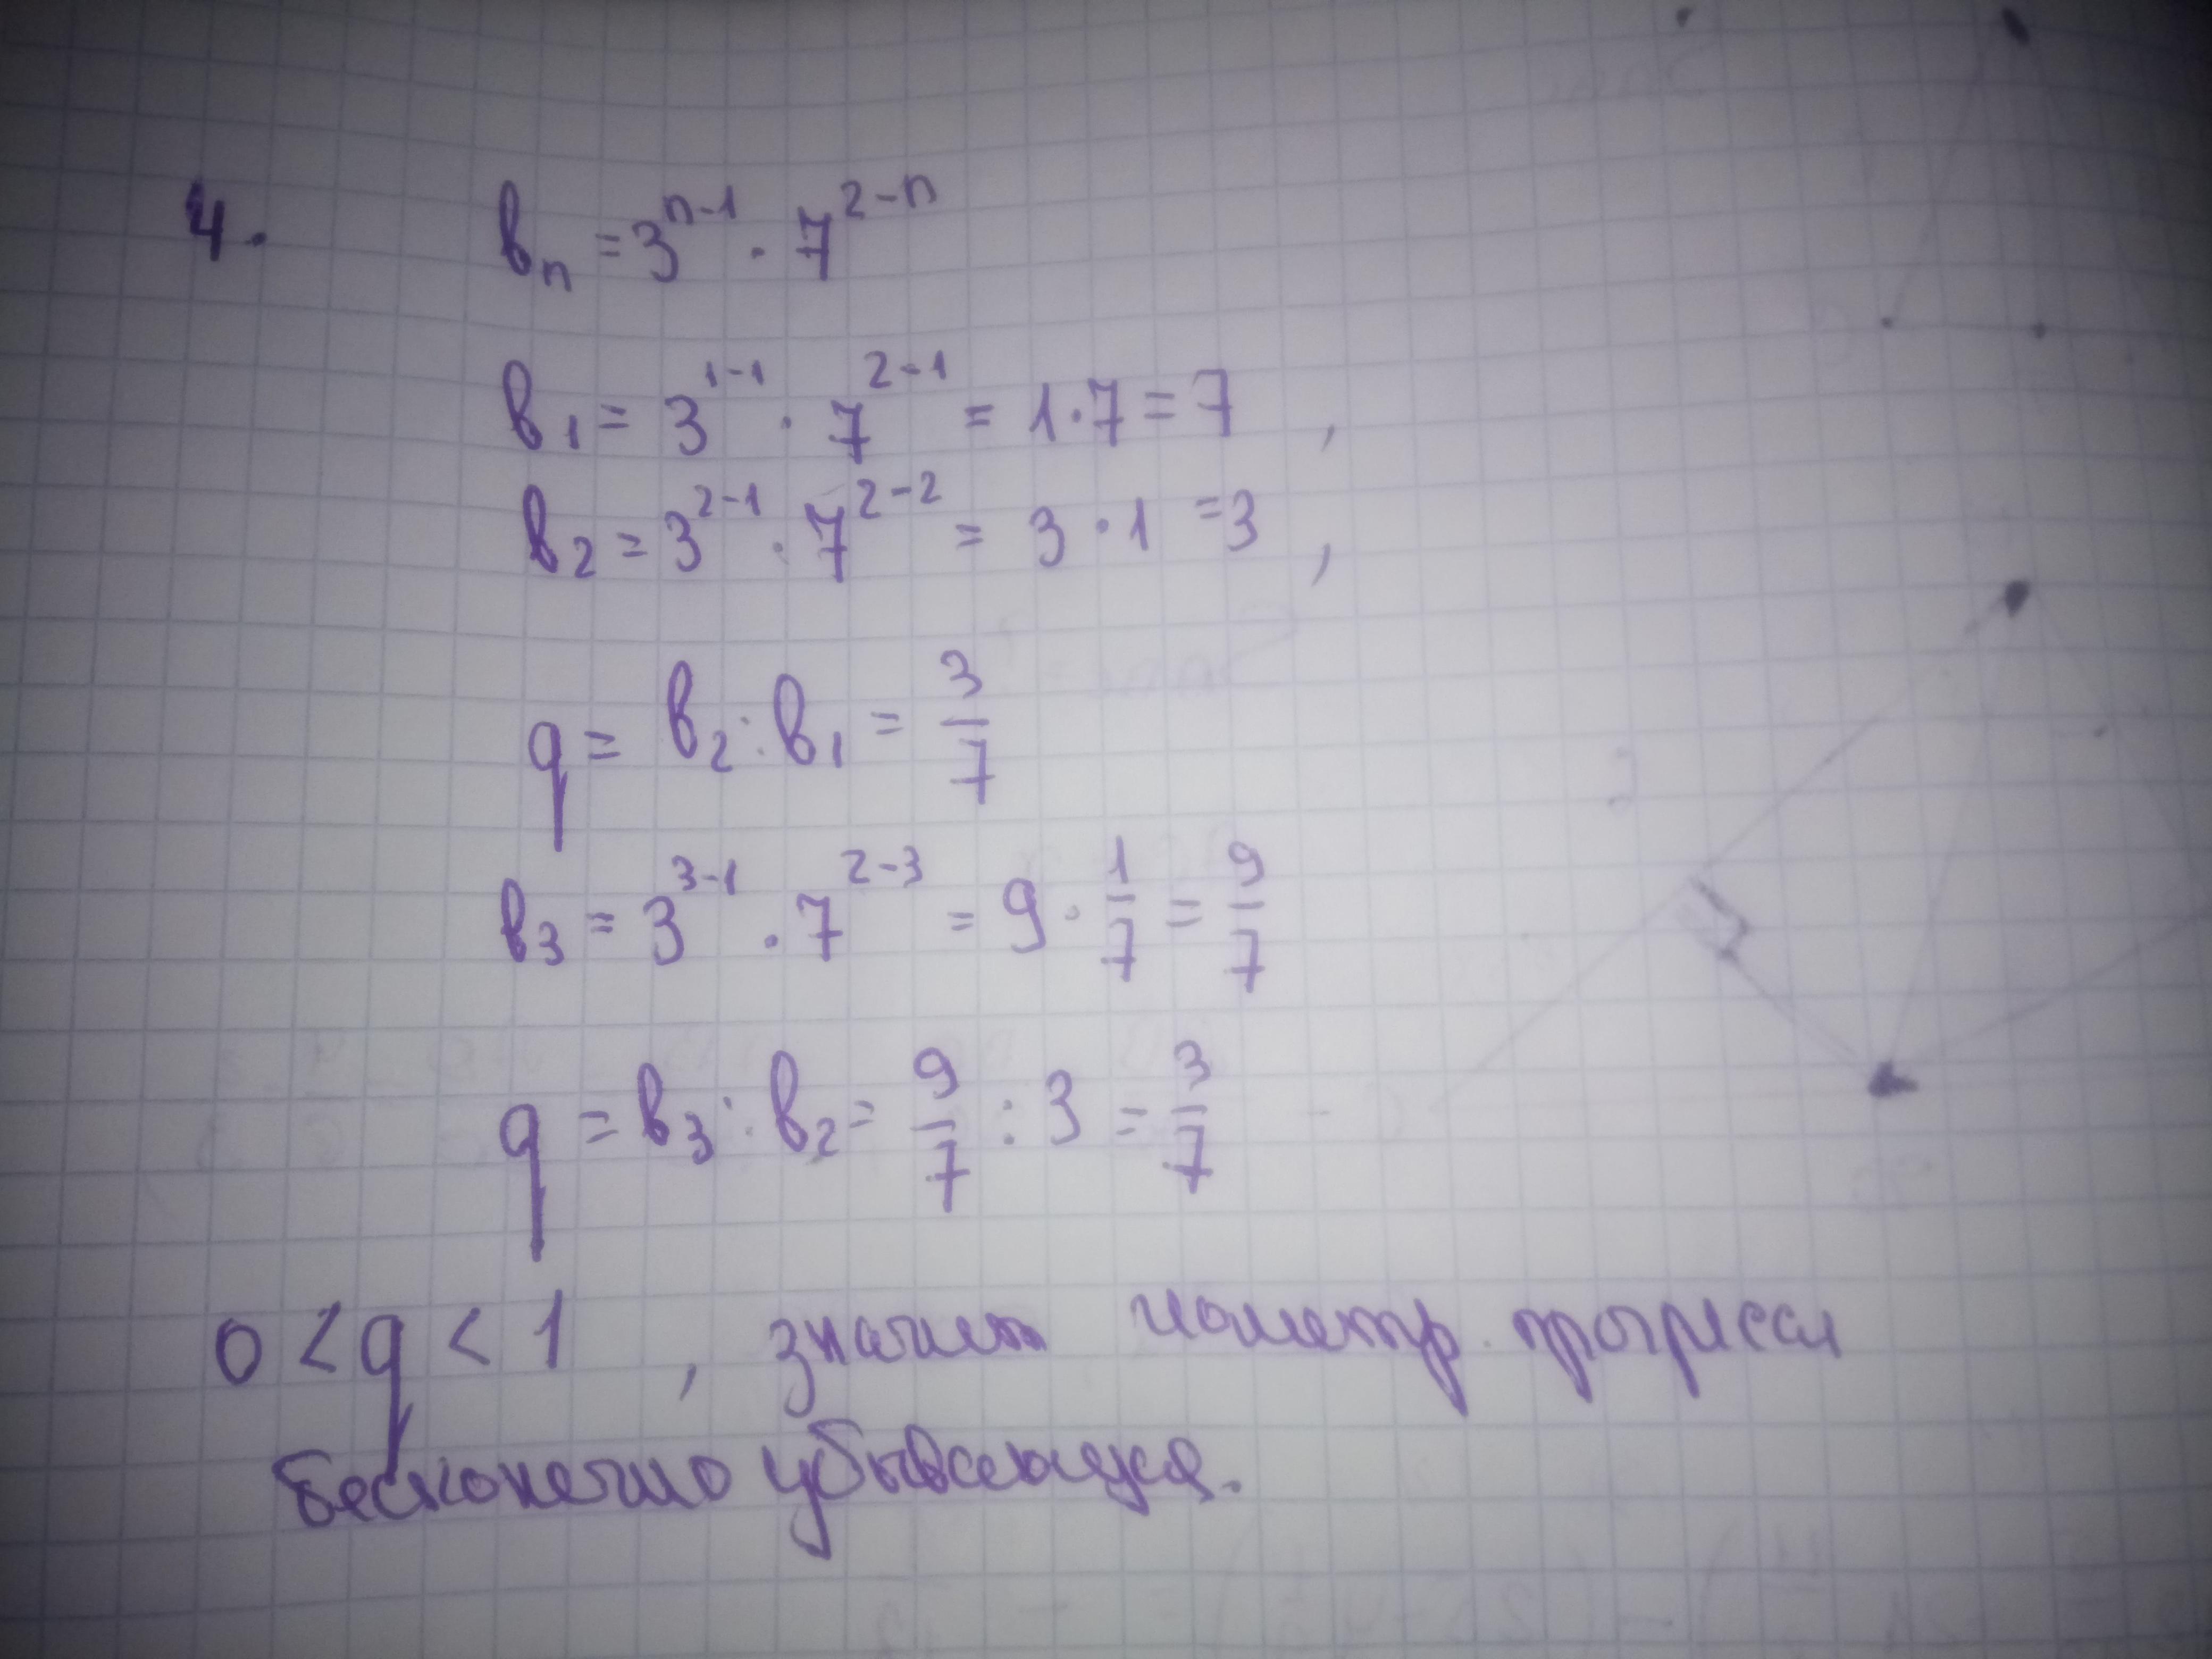 4. bₙ = 3ⁿ⁻¹ · 7²⁻ⁿ
b₁ = 3¹⁻¹ · 7²⁻¹ = 1·7 = 7 ,
b₂ = 3²⁻¹ · 7²⁻² = 3·1 = 3 ,
q = b₂ : b₁ = 3/7
b₃ = 3³⁻¹ · 7²⁻³ = 9 · 1/7 = 9/7
q = b₃ : b₂ = 9/7 : 3 = 3/7
0 < q < 1 , значит геометр. прогресси
бесконечно убывающая.